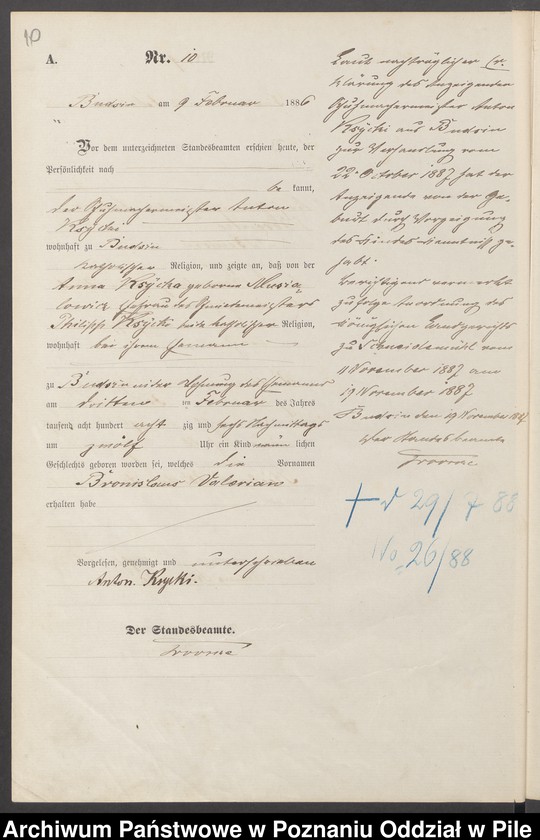 10
A.
Nr. 10
Budsin am 9 Februar 1886
Vor dem unterzeichneten Standesbeamten erschien heute, der
Persönlichkeit nach
be kannt,
der Schuhmachermeister Anton
Ksycki
wohnhaft zu Budsin
katholischer Religion, und zeigte an, daß von der
Anna Ksycka geborene Musia-
lowicz Ehefrau des
Philipp Ksycki beide katholischer Religion,
wohnhaft bei ihrem Ehemanne
zu Budsin in der Wohnung des Ehemannes
am dritten ten Februar des Jahres
tausend acht hundert acht zig und sechs Nachmittags
um zwölf Uhr ein Kind männ lichen
Geschlechts geboren worden sei, welches die Vornamen
Bronislaus Valerian
erhalten habe
Vorgelesen, genehmigt und unterschrieben
Anton. Ksycki.
Der Standesbeamte.
Laut nachträglicher Er-
klärung des Anzeigenden
Schuhmachermeister Anton
Ksycki aus Budsin
zur Verhandlung vom
22 October 1887 hat der
Anzeigende von der Ge-
burt durch
des Kindes Kenntniß ge-
habt.
Berichtigend vermerkt
zufolge Anordnung des
Königlichen Landgerichts
zu Schneidemühl vom
11 November 1887 am
19 November 1887
Budsin den 19 November 1887
Der Standesbeamte
+ d 29/7 88
No 26/88
Archiwum Państwowe w Poznaniu Oddział w Pile